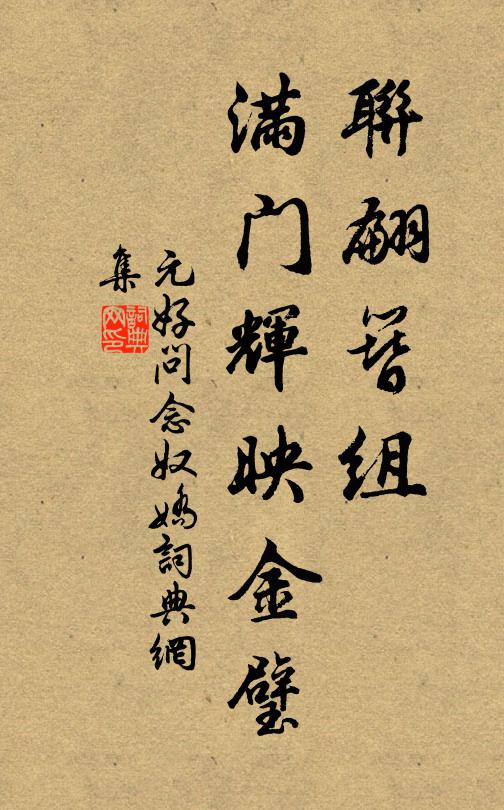 聯翩簪組
滿门輝映金璧
元好問念奴嬌詞典網
集
詞典
网印